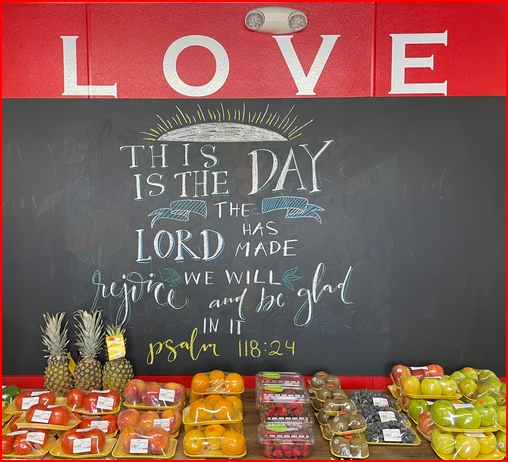 LOVE
THIS
IS THE DAY
THE
LORD HAS
MADE
rejoice WE WILL
and be glad
IN IT
psalm 118:24